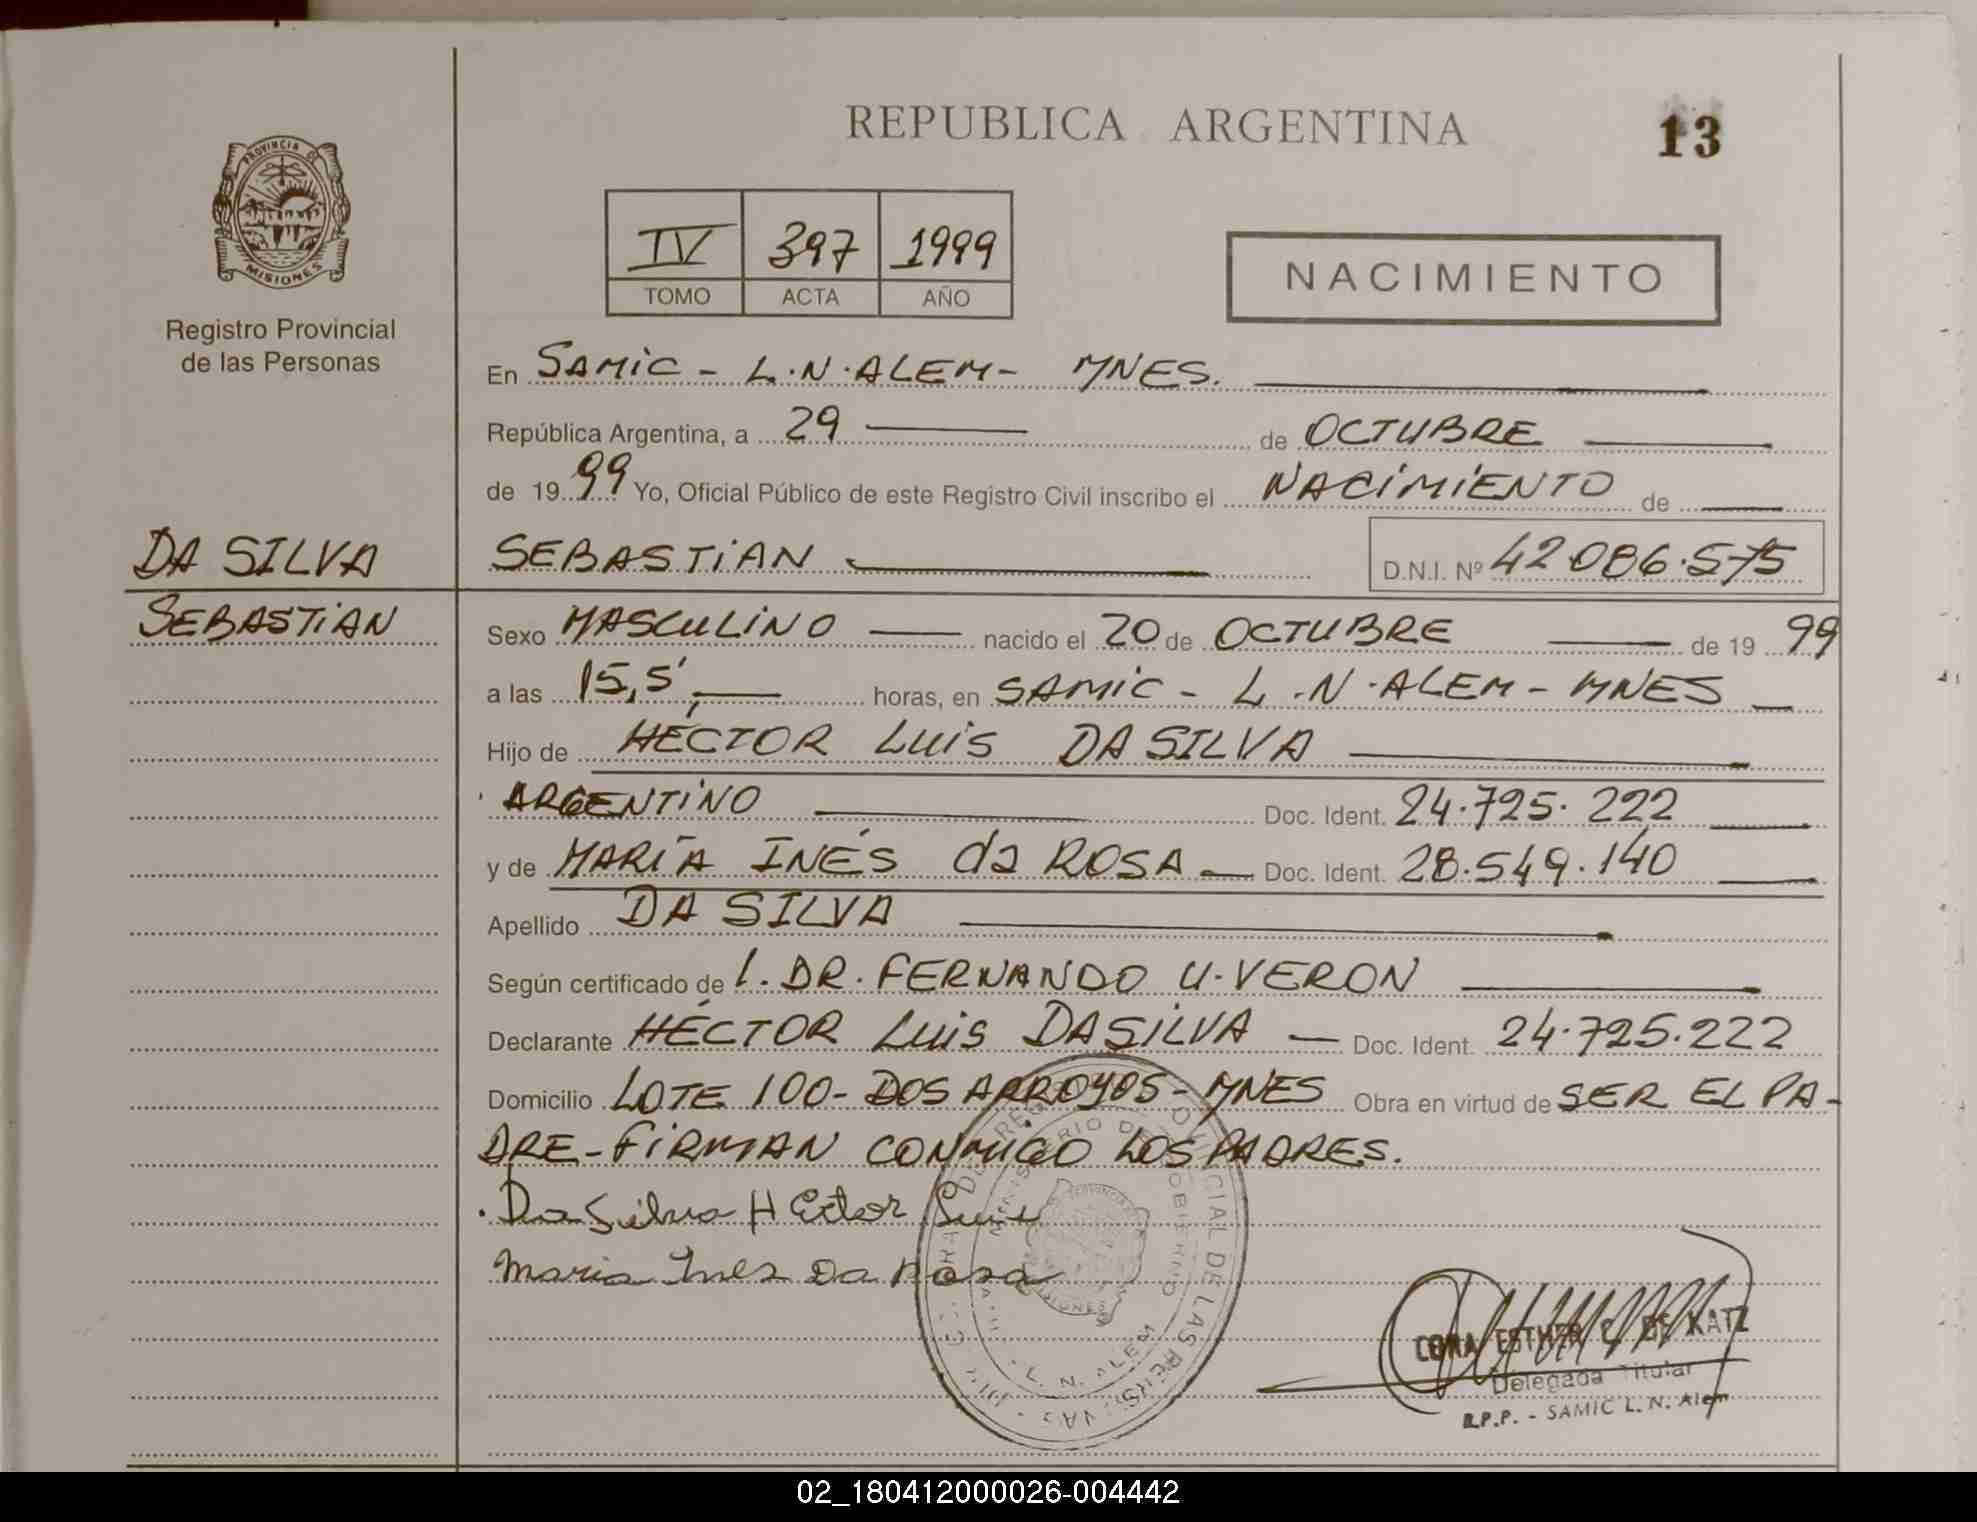 REPUBLICA ARGENTINA
13
PROVINCIA DE
MISIONES
Registro Provincial
de las Personas
IV 397 1999
TOMO ACTA AÑO
NACIMIENTO
En SAMIC - L.N.ALEM - MNES.
República Argentina, a 29 de OCTUBRE
de 1999 Yo, Oficial Público de este Registro Civil inscribo el NACIMIENTO de
DA SILVA
SEBASTIAN
SEBASTIAN D.N.I. Nº 42.086.575
Sexo MASCULINO nacido el 20 de OCTUBRE de 1999
a las 15,5', horas, en SAMIC - L.N.ALEM - MNES
Hijo de HÉCTOR LUIS DA SILVA
ARGENTINO Doc. Ident. 24.725.222
y de MARÍA INÉS da ROSA Doc. Ident. 28.549.140
Apellido DA SILVA
Según certificado de l. DR. FERNANDO U. VERON
Declarante HÉCTOR LUIS DA SILVA Doc. Ident. 24.725.222
Domicilio LOTE 100 - DOS ARROYOS - MNES Obra en virtud de SER EL PA-
DRE - FIRMAN CONMIGO LOS PADRES.
Da Silva HEctor Luis
Maria Ines Da Rosa
L. N. ALEM
CORA ESTHER C. DE KATZ
Delegada Titular
R.P.P. - SAMIC L. N. Alem
02_180412000026-004442